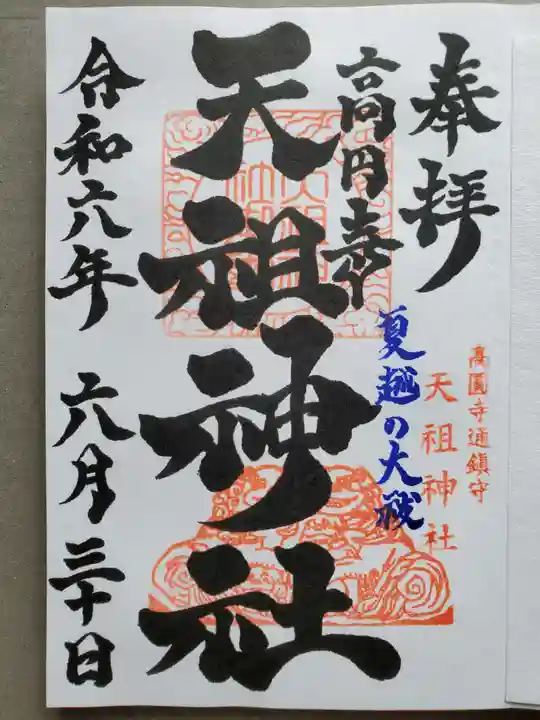 奉拝
高円寺
高圓寺通鎮守
天祖神社
夏越の大祓
天祖神社
令和六年 六月三十日